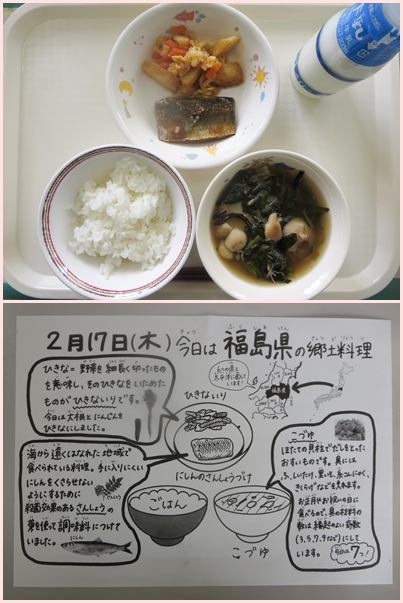 牛乳
2月17日(木)今日は福島県の郷土料理
きょう
ふくしまけん
きょうどりょうり
ひきなの野菜を細長く切ったもの
を意味し、そのひきなをいためた
ものがひきないりです。
今日は大根とにんじんを
ひきなにしました。
ひきないり
海から遠くはなれた地域で
食べられている料理。手に入りにくい
にしんをくさらせない
ようにするために
殺菌効果のあるさんしょうの
葉を使って調味料につけて
いました。
にしん
さんしょう
にしんのさんしょうづけ
福島県
こづゆ
ほたての貝柱でだしをとった
おすいものです。具には
ふ、しいたけ、里いも、糸こんにゃく、
きくらげなどを入れます。
お正月やお祝いの日に
食べるもので、具の材料の
数は縁起のよい奇数
(3,5,7,9など)にして
います。今日は7つ!
ごはん
こづゆ